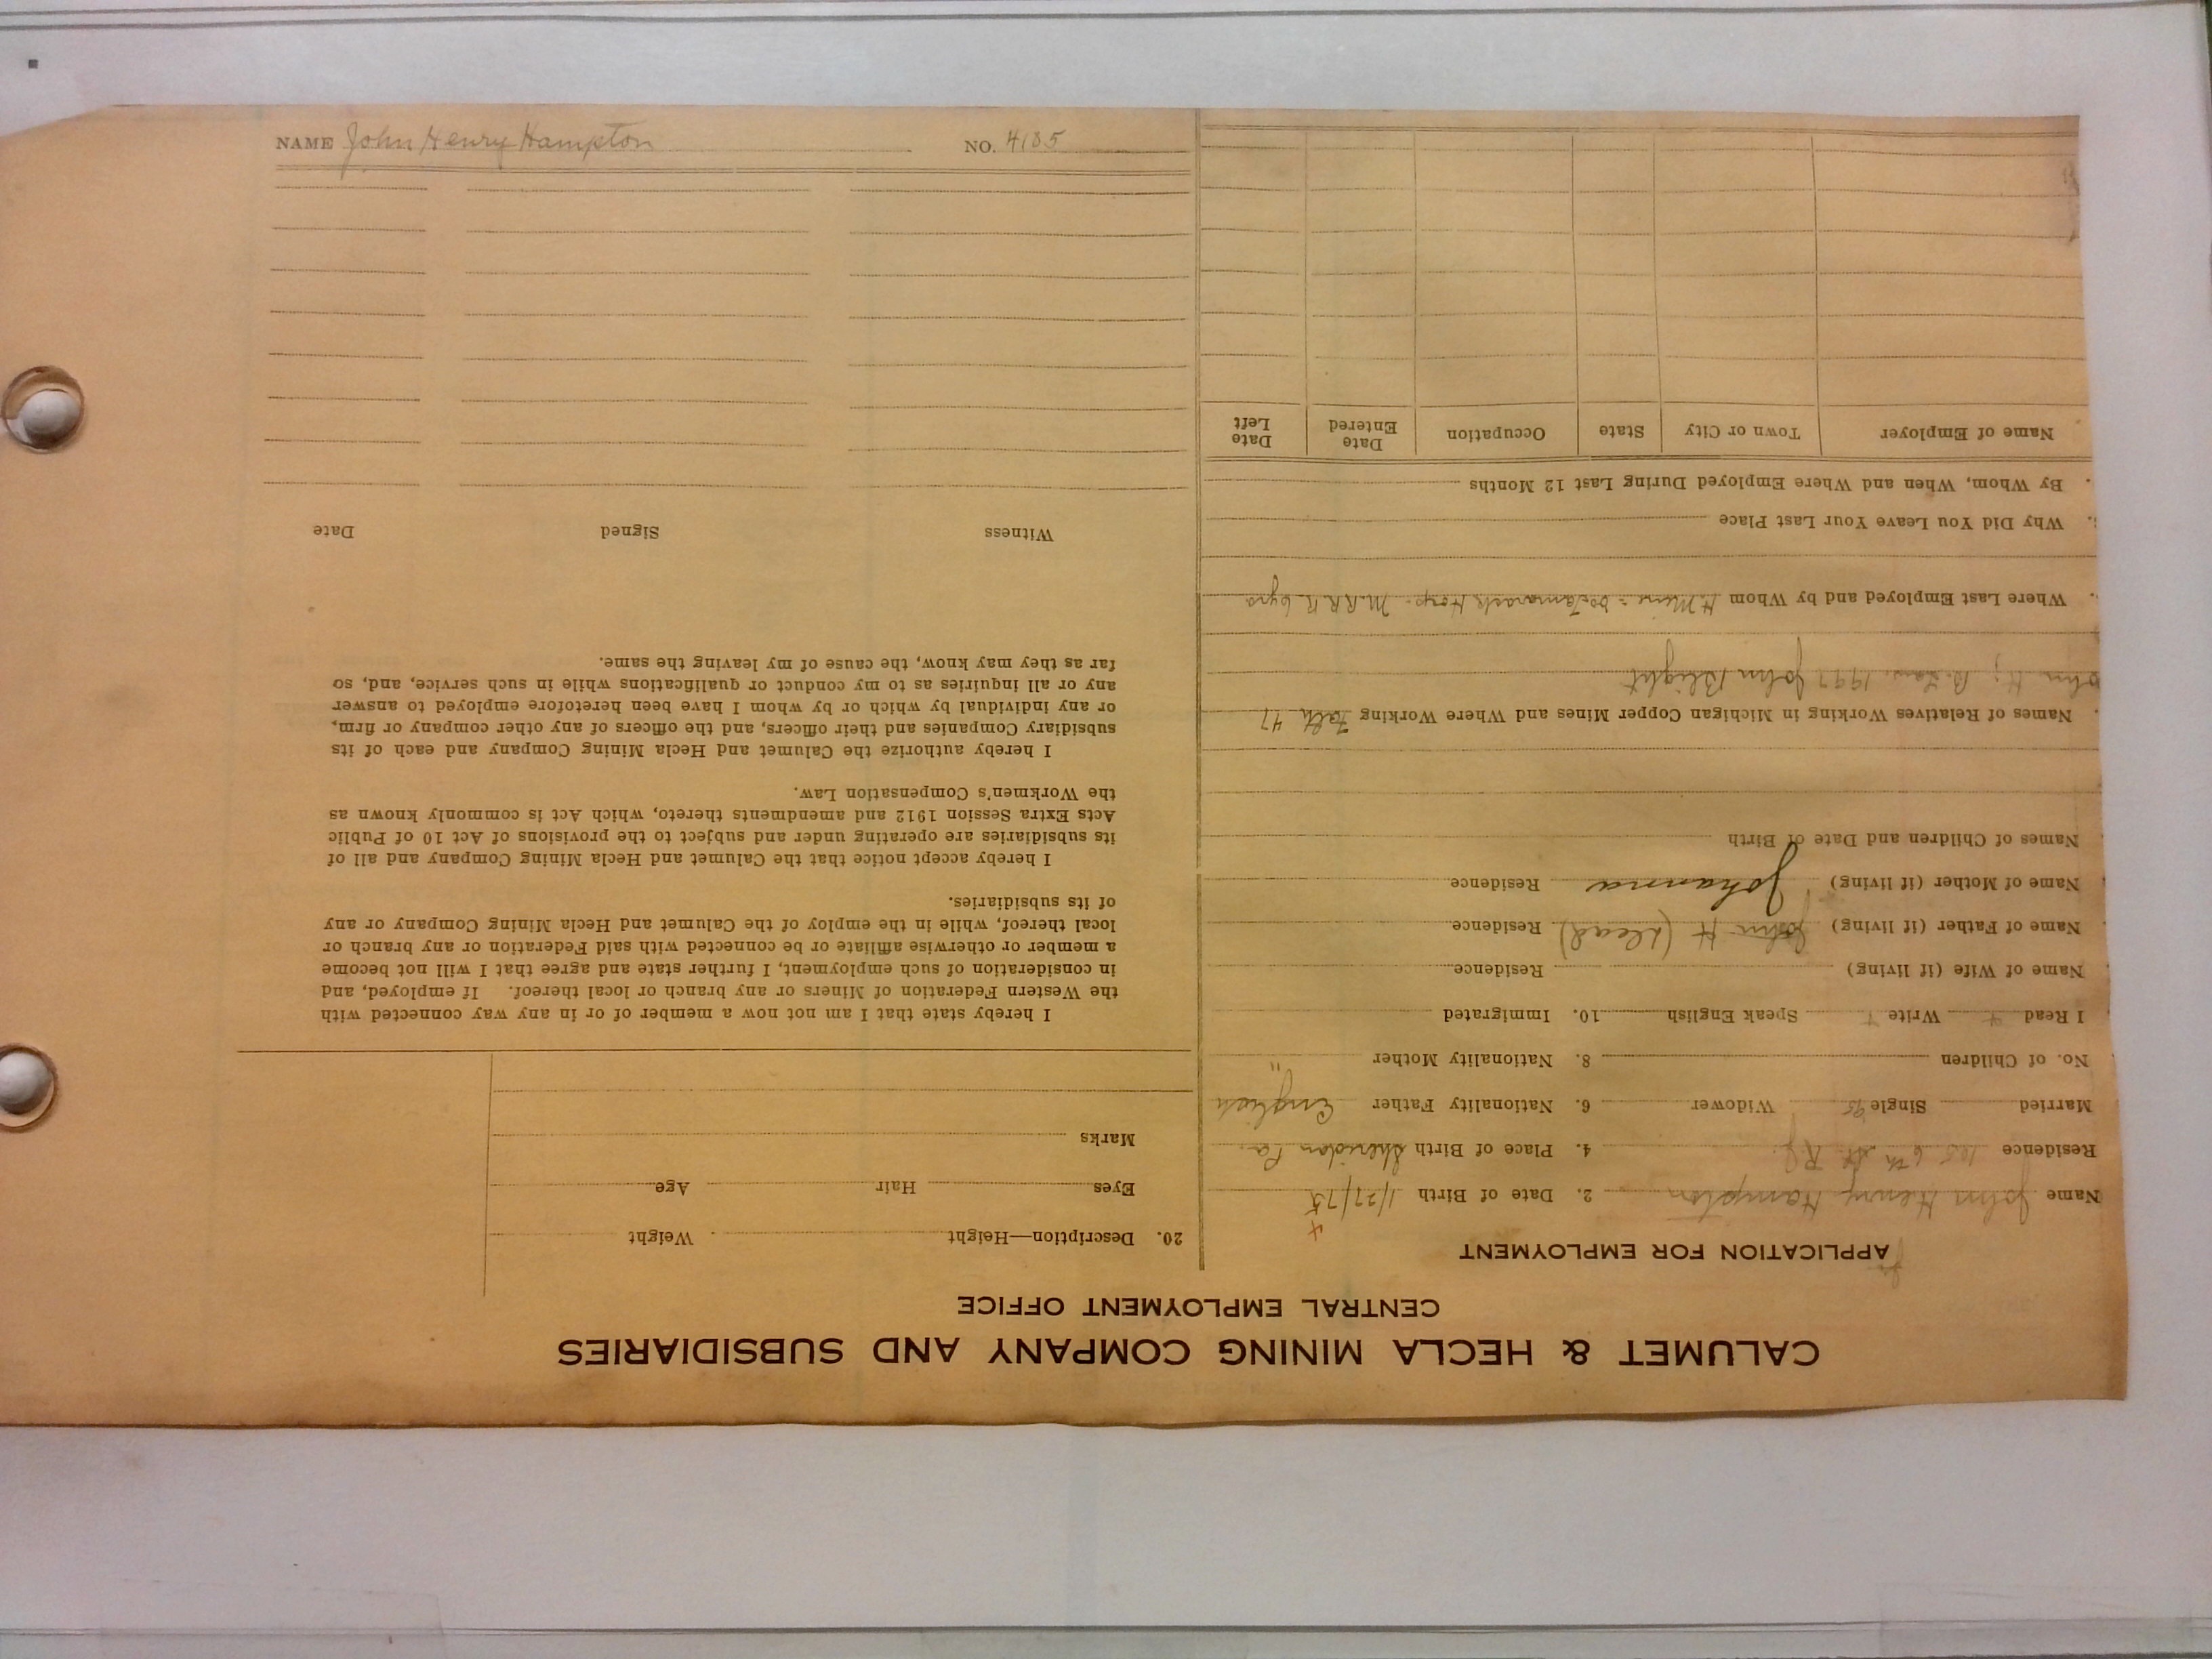 NAME John Henry Hampton NO. 4185
CALUMET & HECLA MINING COMPANY AND SUBSIDIARIES
CENTRAL EMPLOYMENT OFFICE
APPLICATION FOR EMPLOYMENT
Name John Henry Hampton 2. Date of Birth 1/27/75
4
Residence 125 6th St. 4. Place of Birth Sheridan Pa.
Married Single 95 Widower 6. Nationality Father English
No. of Children 8. Nationality Mother "
I Read + Write + Speak English 10. Immigrated
Name of Wife (if living) Residence
Name of Father (if living) John H (dead) Residence
Name of Mother (if living) Johanna Residence
Names of Children and Date of Birth
. Names of Relatives Working in Michigan Copper Mines and Where Working 47
John H; 1997 John Blight
. Where Last Employed and by Whom Tamarack Hosp. M.R.R.R 6yrs
. Why Did You Leave Your Last Place
. By Whom, When and Where Employed During Last 12 Months
Name of Employer Town or City State Occupation Date Entered Date Left
20. Description—Height Weight
Eyes Hair Age
Marks
I hereby state that I am not now a member of or in any way connected with
the Western Federation of Miners or any branch or local thereof. If employed, and
in consideration of such employment, I further state and agree that I will not become
a member or otherwise affiliate or be connected with said Federation or any branch or
local thereof, while in the employ of the Calumet and Hecla Mining Company or any
of its subsidiaries.
I hereby accept notice that the Calumet and Hecla Mining Company and all of
its subsidiaries are operating under and subject to the provisions of Act 10 of Public
Acts Extra Session 1912 and amendments thereto, which Act is commonly known as
the Workmen's Compensation Law.
I hereby authorize the Calumet and Hecla Mining Company and each of its
subsidiary Companies and their officers, and the officers of any other company or firm,
or any individual by which or by whom I have been heretofore employed to answer
any or all inquiries as to my conduct or qualifications while in such service, and, so
far as they may know, the cause of my leaving the same.
Witness Signed Date